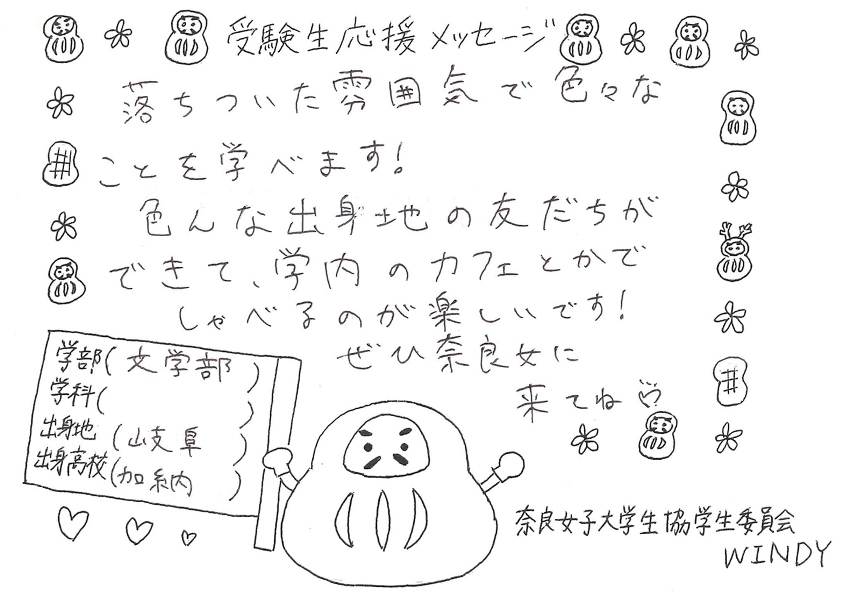 受験生応援メッセージ
落ちついた雰囲気で色々な
ことを学べます!
色んな出身地の友だちが
できて、学内のカフェとかで
しゃべるのが楽しいです!
ぜひ奈良女に
来てね♡
学部(文学部)
学科( )
出身地(岐阜)
出身高校(加納)
奈良女子大学生協学生委員会
WINDY